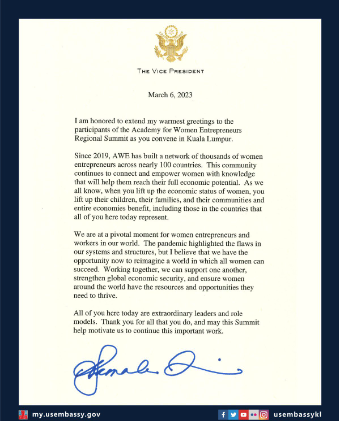 THE VICE PRESIDENT
March 6, 2023
I am honored to extend my warmest greetings to the
participants of the Academy for Women Entrepreneurs
Regional Summit as you convene in Kuala Lumpur.
Since 2019, AWE has built a network of thousands of women
entrepreneurs across nearly 100 countries. This community
continues to connect and empower women with knowledge
that will help them reach their full economic potential. As we
all know, when you lift up the economic status of women, you
lift up their children, their families, and their communities and
entire economies benefit, including those in the countries that
all of you here today represent.
We are at a pivotal moment for women entrepreneurs and
workers in our world. The pandemic highlighted the flaws in
our systems and structures, but I believe that we have the
opportunity now to reimagine a world in which all women can
succeed. Working together, we can support one another,
strengthen global economic security, and ensure women
around the world have the resources and opportunities they
need to thrive.
All of you here today are extraordinary leaders and role
models. Thank you for all that you do, and may this Summit
help motivate us to continue this important work.
my.usembassy.gov
usembassykl